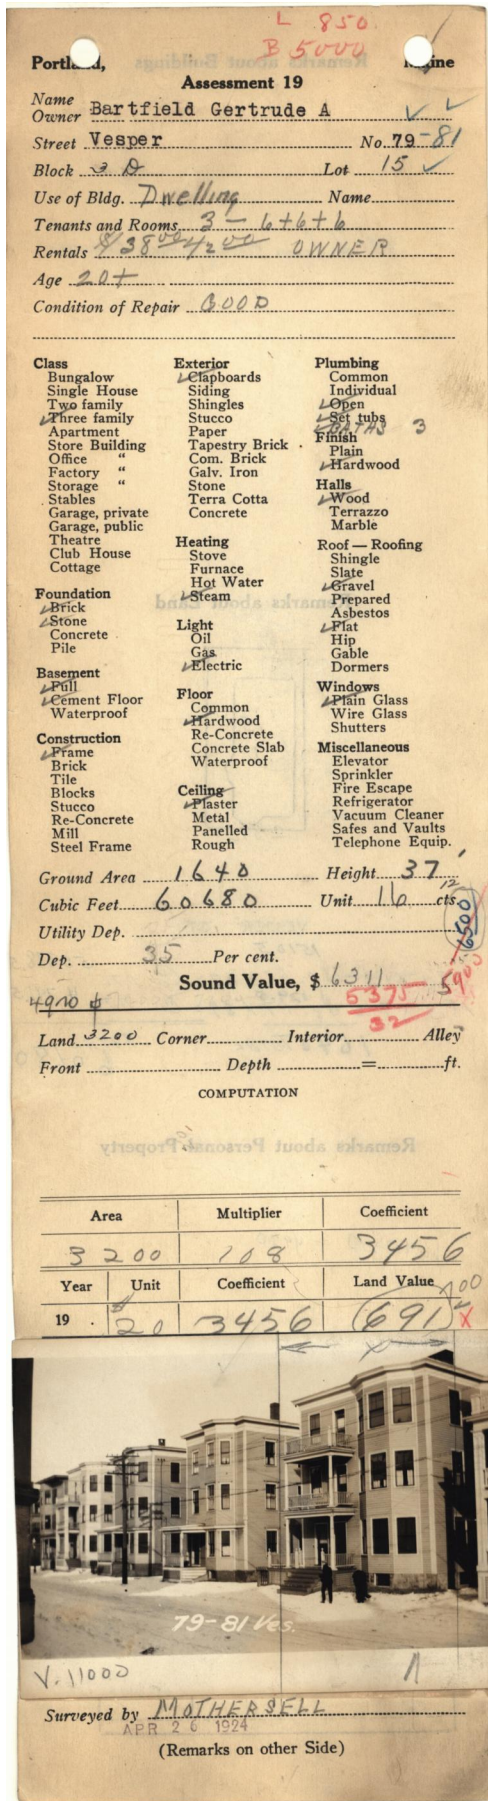 L 850
B 5000
Portland, Maine
Assessment 19
Name
Owner Bartfield Gertrude A ✓ ✓
Street Vesper No. 79-81
Block 3 D Lot 15 ✓
Use of Bldg. Dwelling Name
Tenants and Rooms 3 - 6+6+6
Rentals $/38 00 42 00 OWNER
Age 20+
Condition of Repair GOOD
Class
Bungalow
Single House
Two family
✓Three family
Apartment
Store Building
Office "
Factory "
Storage "
Stables
Garage, private
Garage, public
Theatre
Club House
Cottage
Foundation
✓Brick
✓Stone
Concrete
Pile
Basement
✓Full
✓Cement Floor
Waterproof
Construction
✓Frame
Brick
Tile
Blocks
Stucco
Re-Concrete
Mill
Steel Frame
Exterior
✓Clapboards
Siding
Shingles
Stucco
Paper
Tapestry Brick
Com. Brick
Galv. Iron
Stone
Terra Cotta
Concrete
Heating
Stove
Furnace
Hot Water
✓Steam
Light
Oil
Gas
✓Electric
Floor
Common
✓Hardwood
Re-Concrete
Concrete Slab
Waterproof
Ceiling
✓Plaster
Metal
Panelled
Rough
Plumbing
Common
Individual
✓Open
✓Set tubs
✓BATHS 3
Finish
Plain
✓Hardwood
Halls
✓Wood
Terrazzo
Marble
Roof — Roofing
Shingle
Slate
✓Gravel
Prepared
Asbestos
✓Flat
Hip
Gable
Dormers
Windows
✓Plain Glass
Wire Glass
Shutters
Miscellaneous
Elevator
Sprinkler
Fire Escape
Refrigerator
Vacuum Cleaner
Safes and Vaults
Telephone Equip.
Ground Area 1640 Height 37'
Cubic Feet 60680 Unit 16 12 cts.
6500
Utility Dep.
Dep. 35 Per cent.
Sound Value, $ 6311
5375
32
4970
Land 3200 Corner Interior Alley
Front Depth = ft.
COMPUTATION
Area Multiplier Coefficient
3200 108 3456
Year Unit Coefficient Land Value
19 . $20 3456 (691) X
79-81 Ves.
V. 11000
Surveyed by MOTHERSELL
APR 26 1924
(Remarks on other Side)